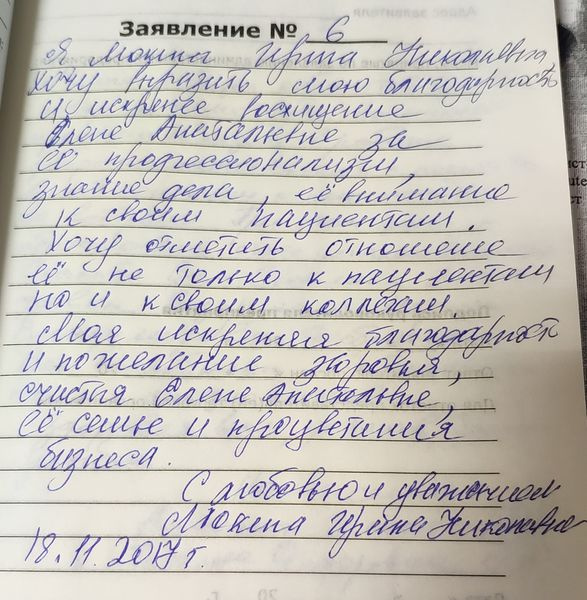 Заявление № 6
Я Мокина Ирина Николаевна
хочу выразить мою благодарность
и искренее восхищение
Елене Анатальевне за
её профессионализм,
знание дела, её внимание
к своим пациентам.
Хочу отметить отношение
её не только к пациентам
но и к своим коллегам
Моя искренняя благодарность
и пожелание здоровья,
счастья Елене Анатольевне,
её семье и процветания
бизнеса.
С любовью и уважением
Мокина Ирина Николаевна
18.11.2017 г.